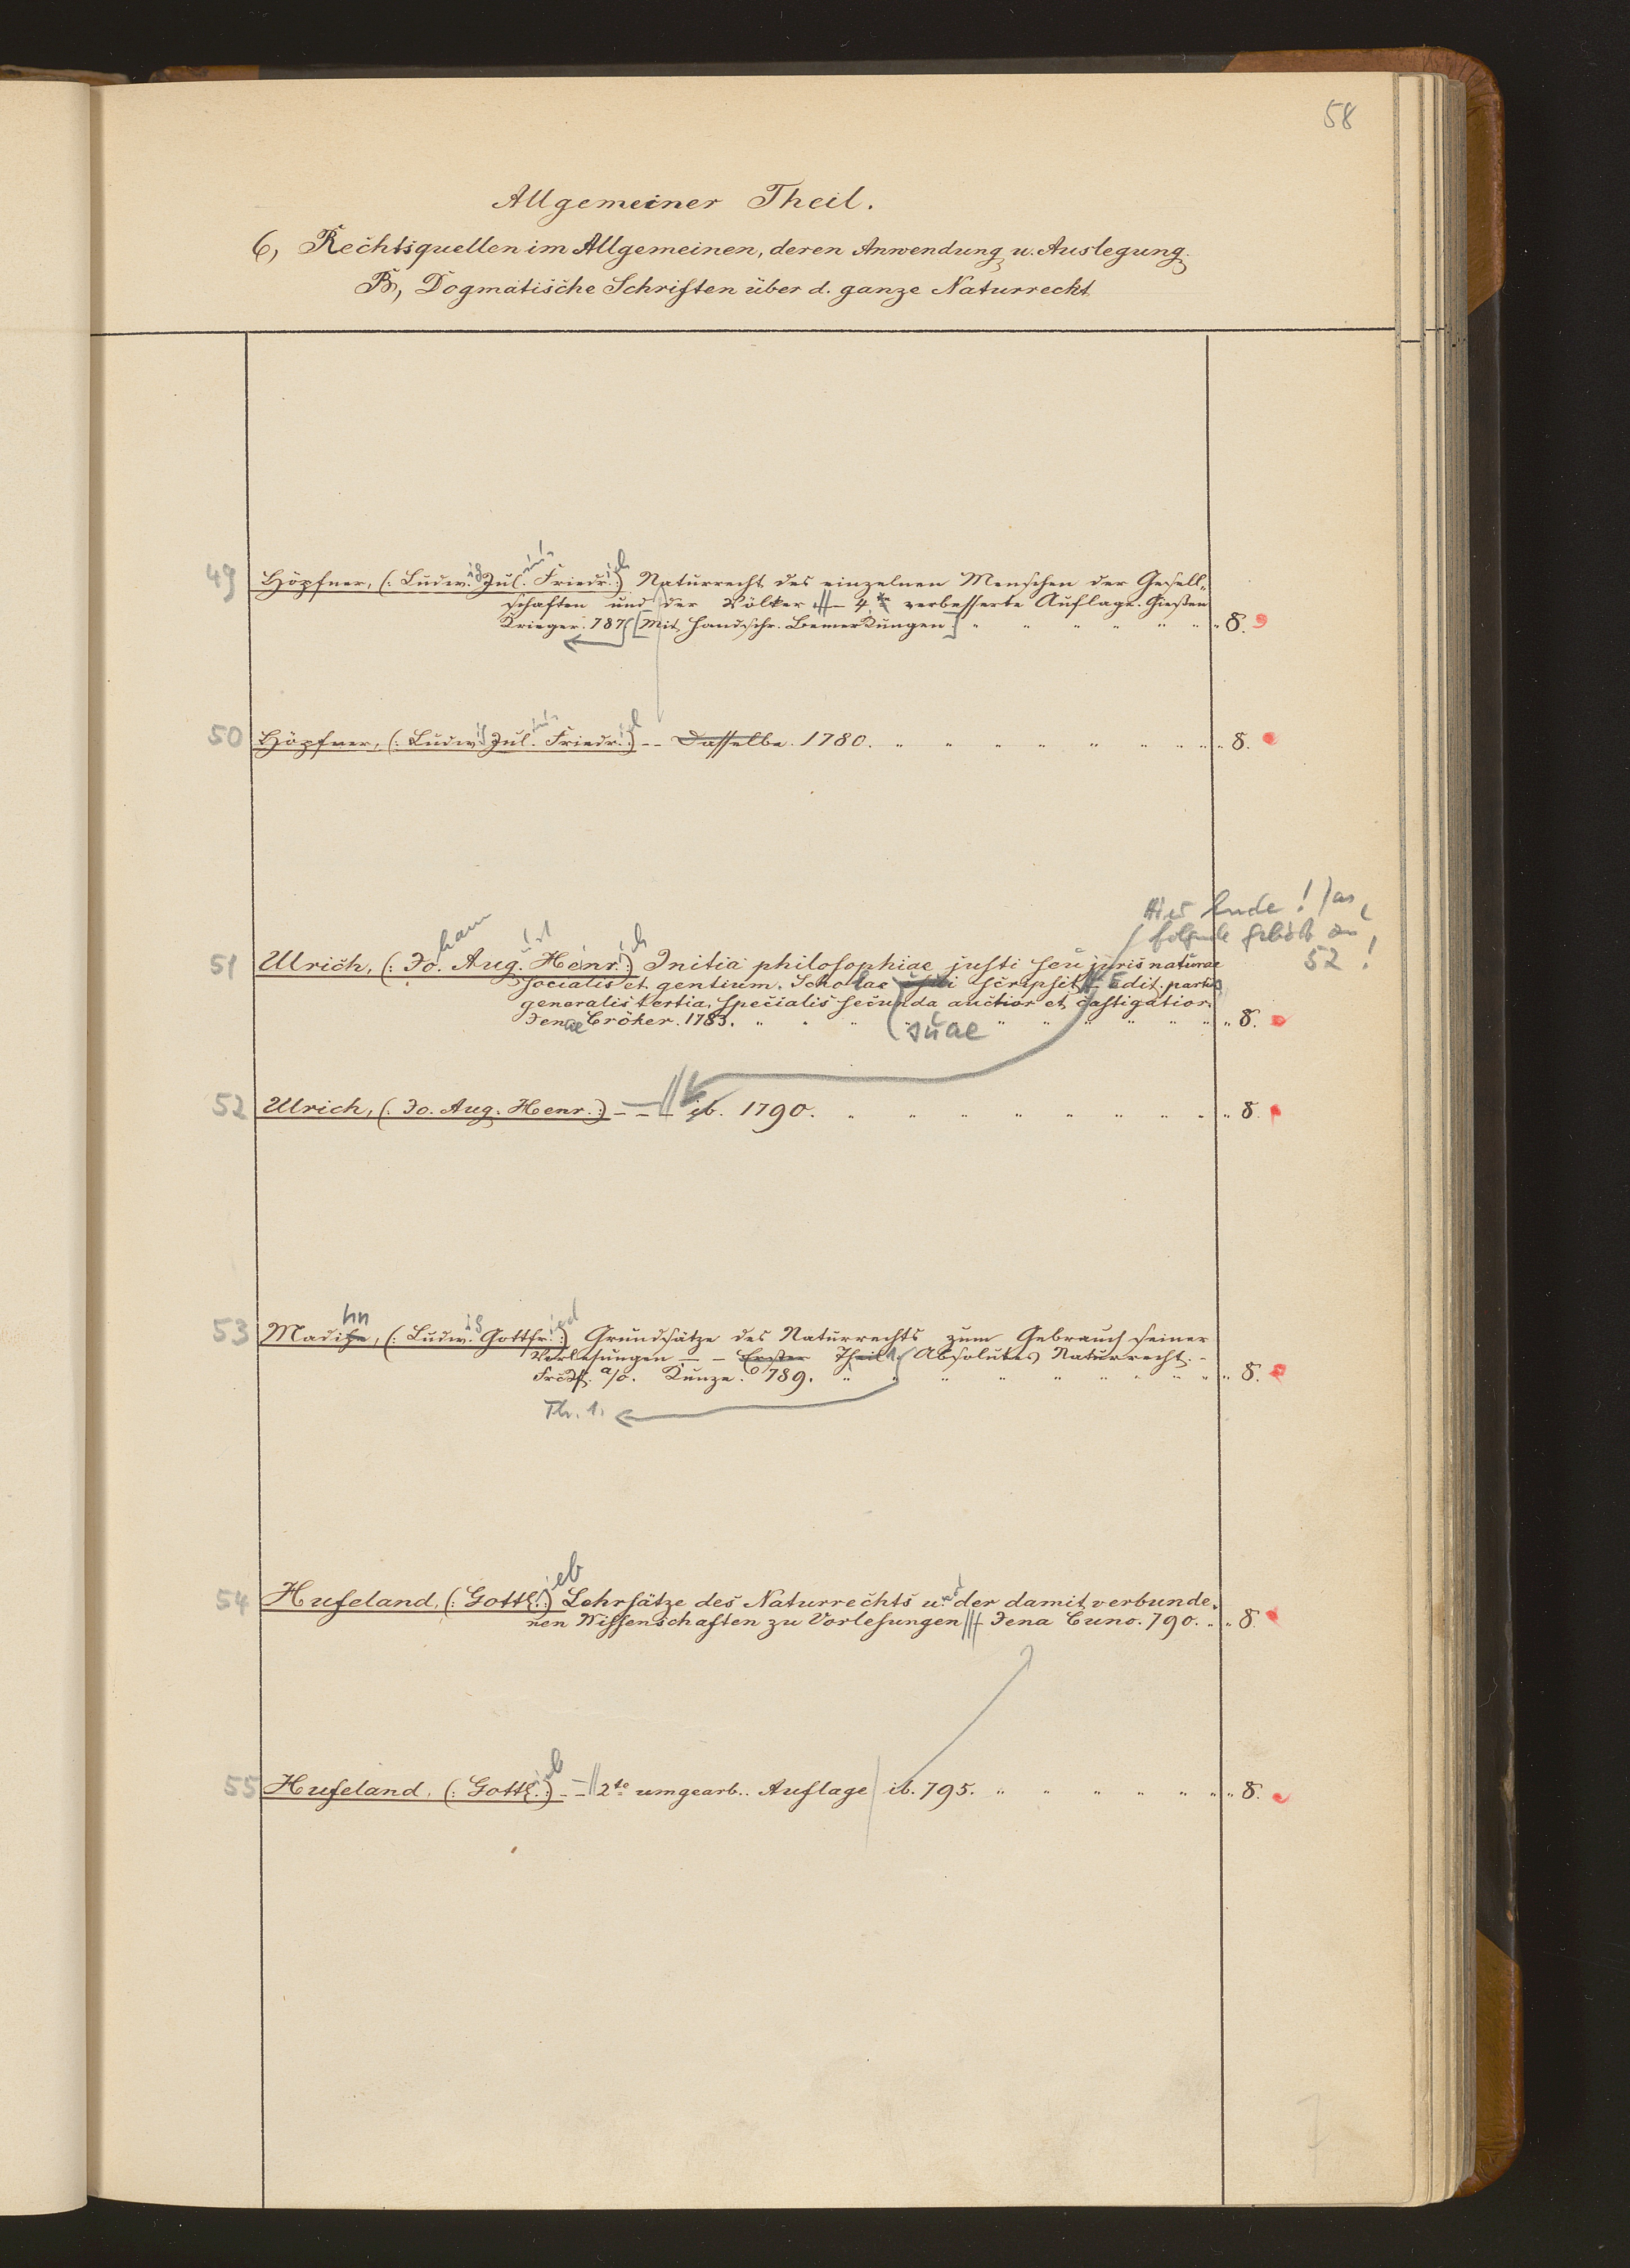 58
Allgemeiner Theil.
6, Rechtsquellen im Allgemeinen, deren Anwendung u. Auslegung.
B, Dogmatische Schriften über d. ganze Naturrecht
49 Höpfner, (: Ludwig Julius Friedrich :) Naturrecht des einzelnen Menschen der Gesell-
schaften und der Völker. – 4. verbesserte Auflage. Gießen
Krieger. 787 [Mit handschr. Bemerkungen] 8.
50 Höpfner, (: Ludwig Julius Friedrich :) – – Dasselbe. 1780. 8.
Hier Ende! Das
folgende gehört zu
52!
51 Ulrich, (: Johann August Henrich :) Initia philosophiae justi seu juris naturae
socialis et gentium. Scholae suae scripsit – Edit. partis
generalis tertia, specialis secunda auctior et castigatior.
Jenae Cröker. 1783. 8.
52 Ulrich, (: Jo. Aug. Henr. :) – – – ib. 1790. 8.
53 Madihn, (: Ludwig Gottfried :) Grundsätze des Naturrechts zum Gebrauch seiner
Vorlesungen – – Erster Theil 1. Absolutes Naturrecht. –
Frckf. a/O. Kunze. 789. 8.
Th. 1.
54 Hufeland, (: Gottlieb :) Lehrsätze des Naturrechts und der damit verbunde-
nen Wissenschaften zu Vorlesungen – Jena Cuno. 790. 8.
55 Hufeland, (: Gottlieb :) – – 2te umgearb. Auflage ib. 795. 8.